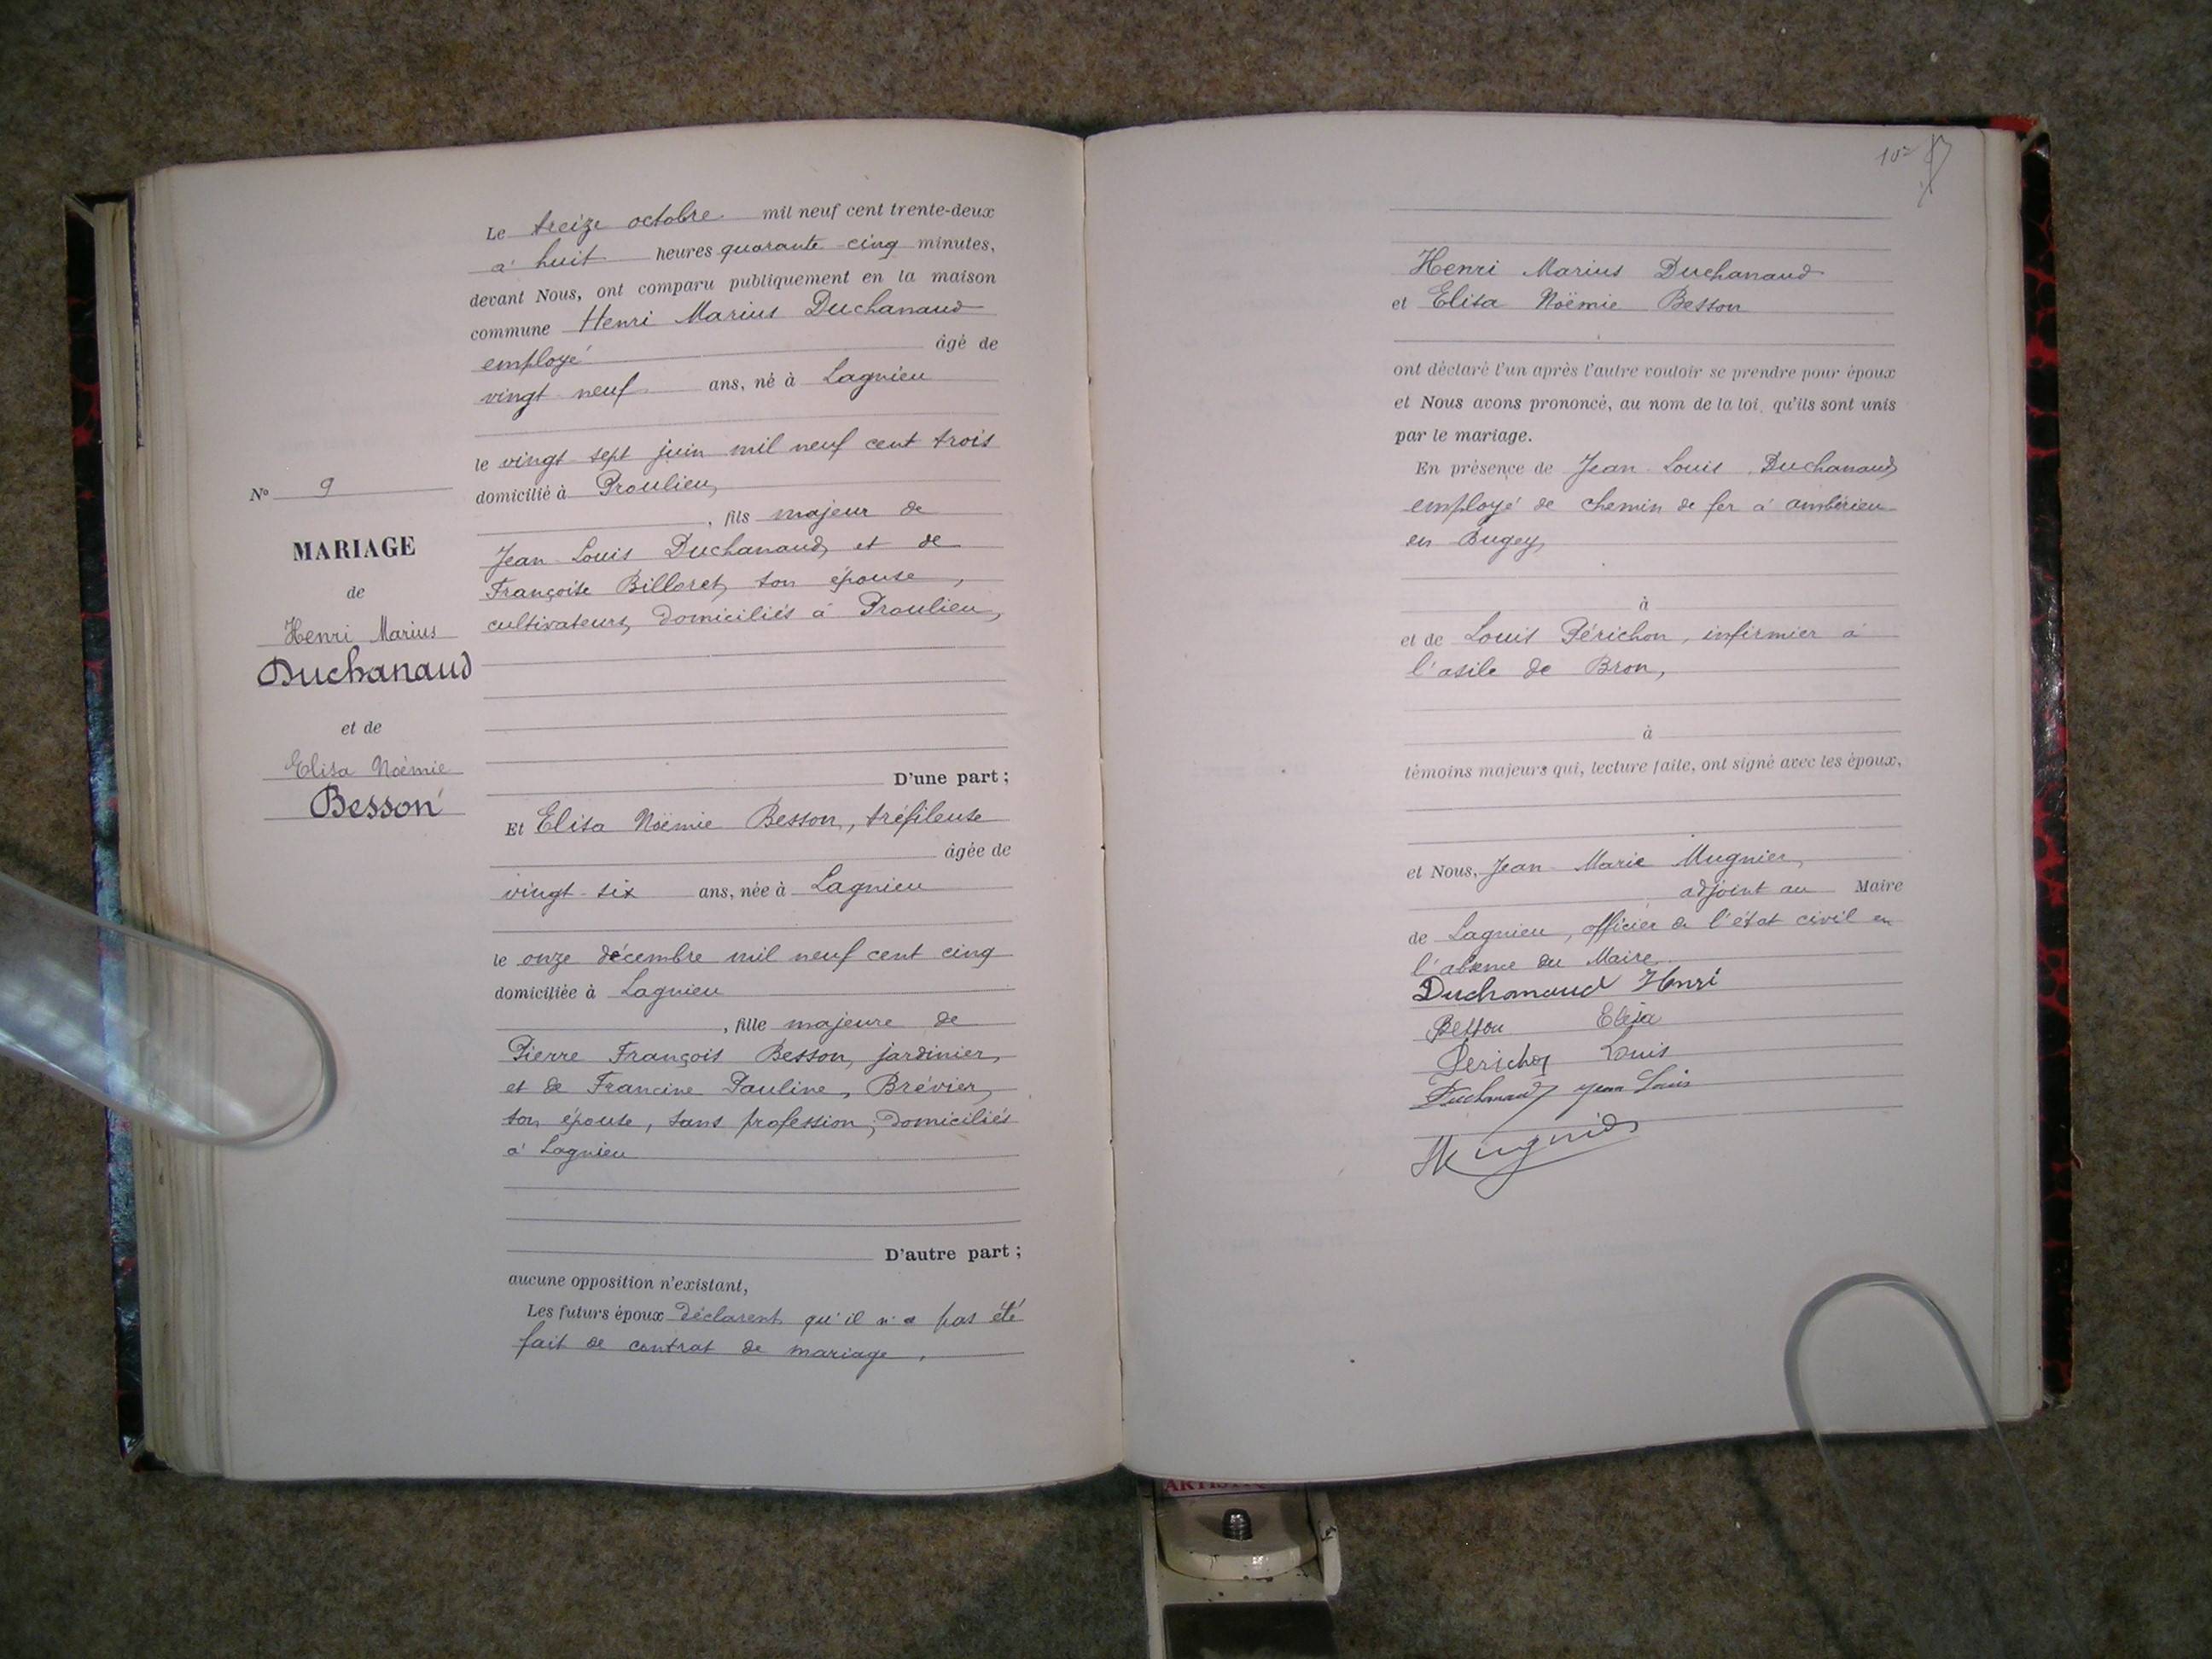 N° 9
MARIAGE
de
Henri Marius
Duchanaud
et de
Elisa Noémie
Besson
Le treize octobre mil neuf cent trente-deux
à huit heures quarante-cinq minutes,
devant Nous, ont comparu publiquement en la maison
commune Henri Marius Duchanaud
employé âgé de
vingt neuf ans, né à Lagnieu
le vingt-sept juin mil neuf cent trois
domicilié à Proulieu,
, fils majeur de
Jean-Louis Duchanaud, et de
Françoise Billoret, son épouse,
cultivateurs, domiciliés à Proulieu,
D'une part ;
Et Elisa Noëmie Besson, tréfileuse
âgée de
vingt-six ans, née à Lagnieu
le onze décembre mil neuf cent cinq
domiciliée à Lagnieu
, fille majeure de
Pierre François Besson, jardinier,
et de Francine Pauline, Brévier,
son épouse, sans profession, domiciliés
à Lagnieu
D'autre part ;
aucune opposition n'existant,
Les futurs époux déclarent qu'il n'a pas été
fait de contrat de mariage.
Henri Marius Duchanaud
et Elisa Noëmie Besson
ont déclaré l'un après l'autre vouloir se prendre pour époux
et Nous avons prononcé, au nom de la loi, qu'ils sont unis
par le mariage.
En présence de Jean-Louis Duchanaud,
employé de chemin de fer à ambérieu
en Bugey,
à
et de Louis Périchon, infirmier à
l'asile de Bron,
à
témoins majeurs qui, lecture faite, ont signé avec les époux,
et Nous, Jean-Marie Mugnier,
adjoint au Maire
de Lagnieu, officier de l'état civil en
l'absence du Maire
Duchanaud Henri
Besson Elisa
Perichon Louis
Duchanaud Jean Louis
Mugnier